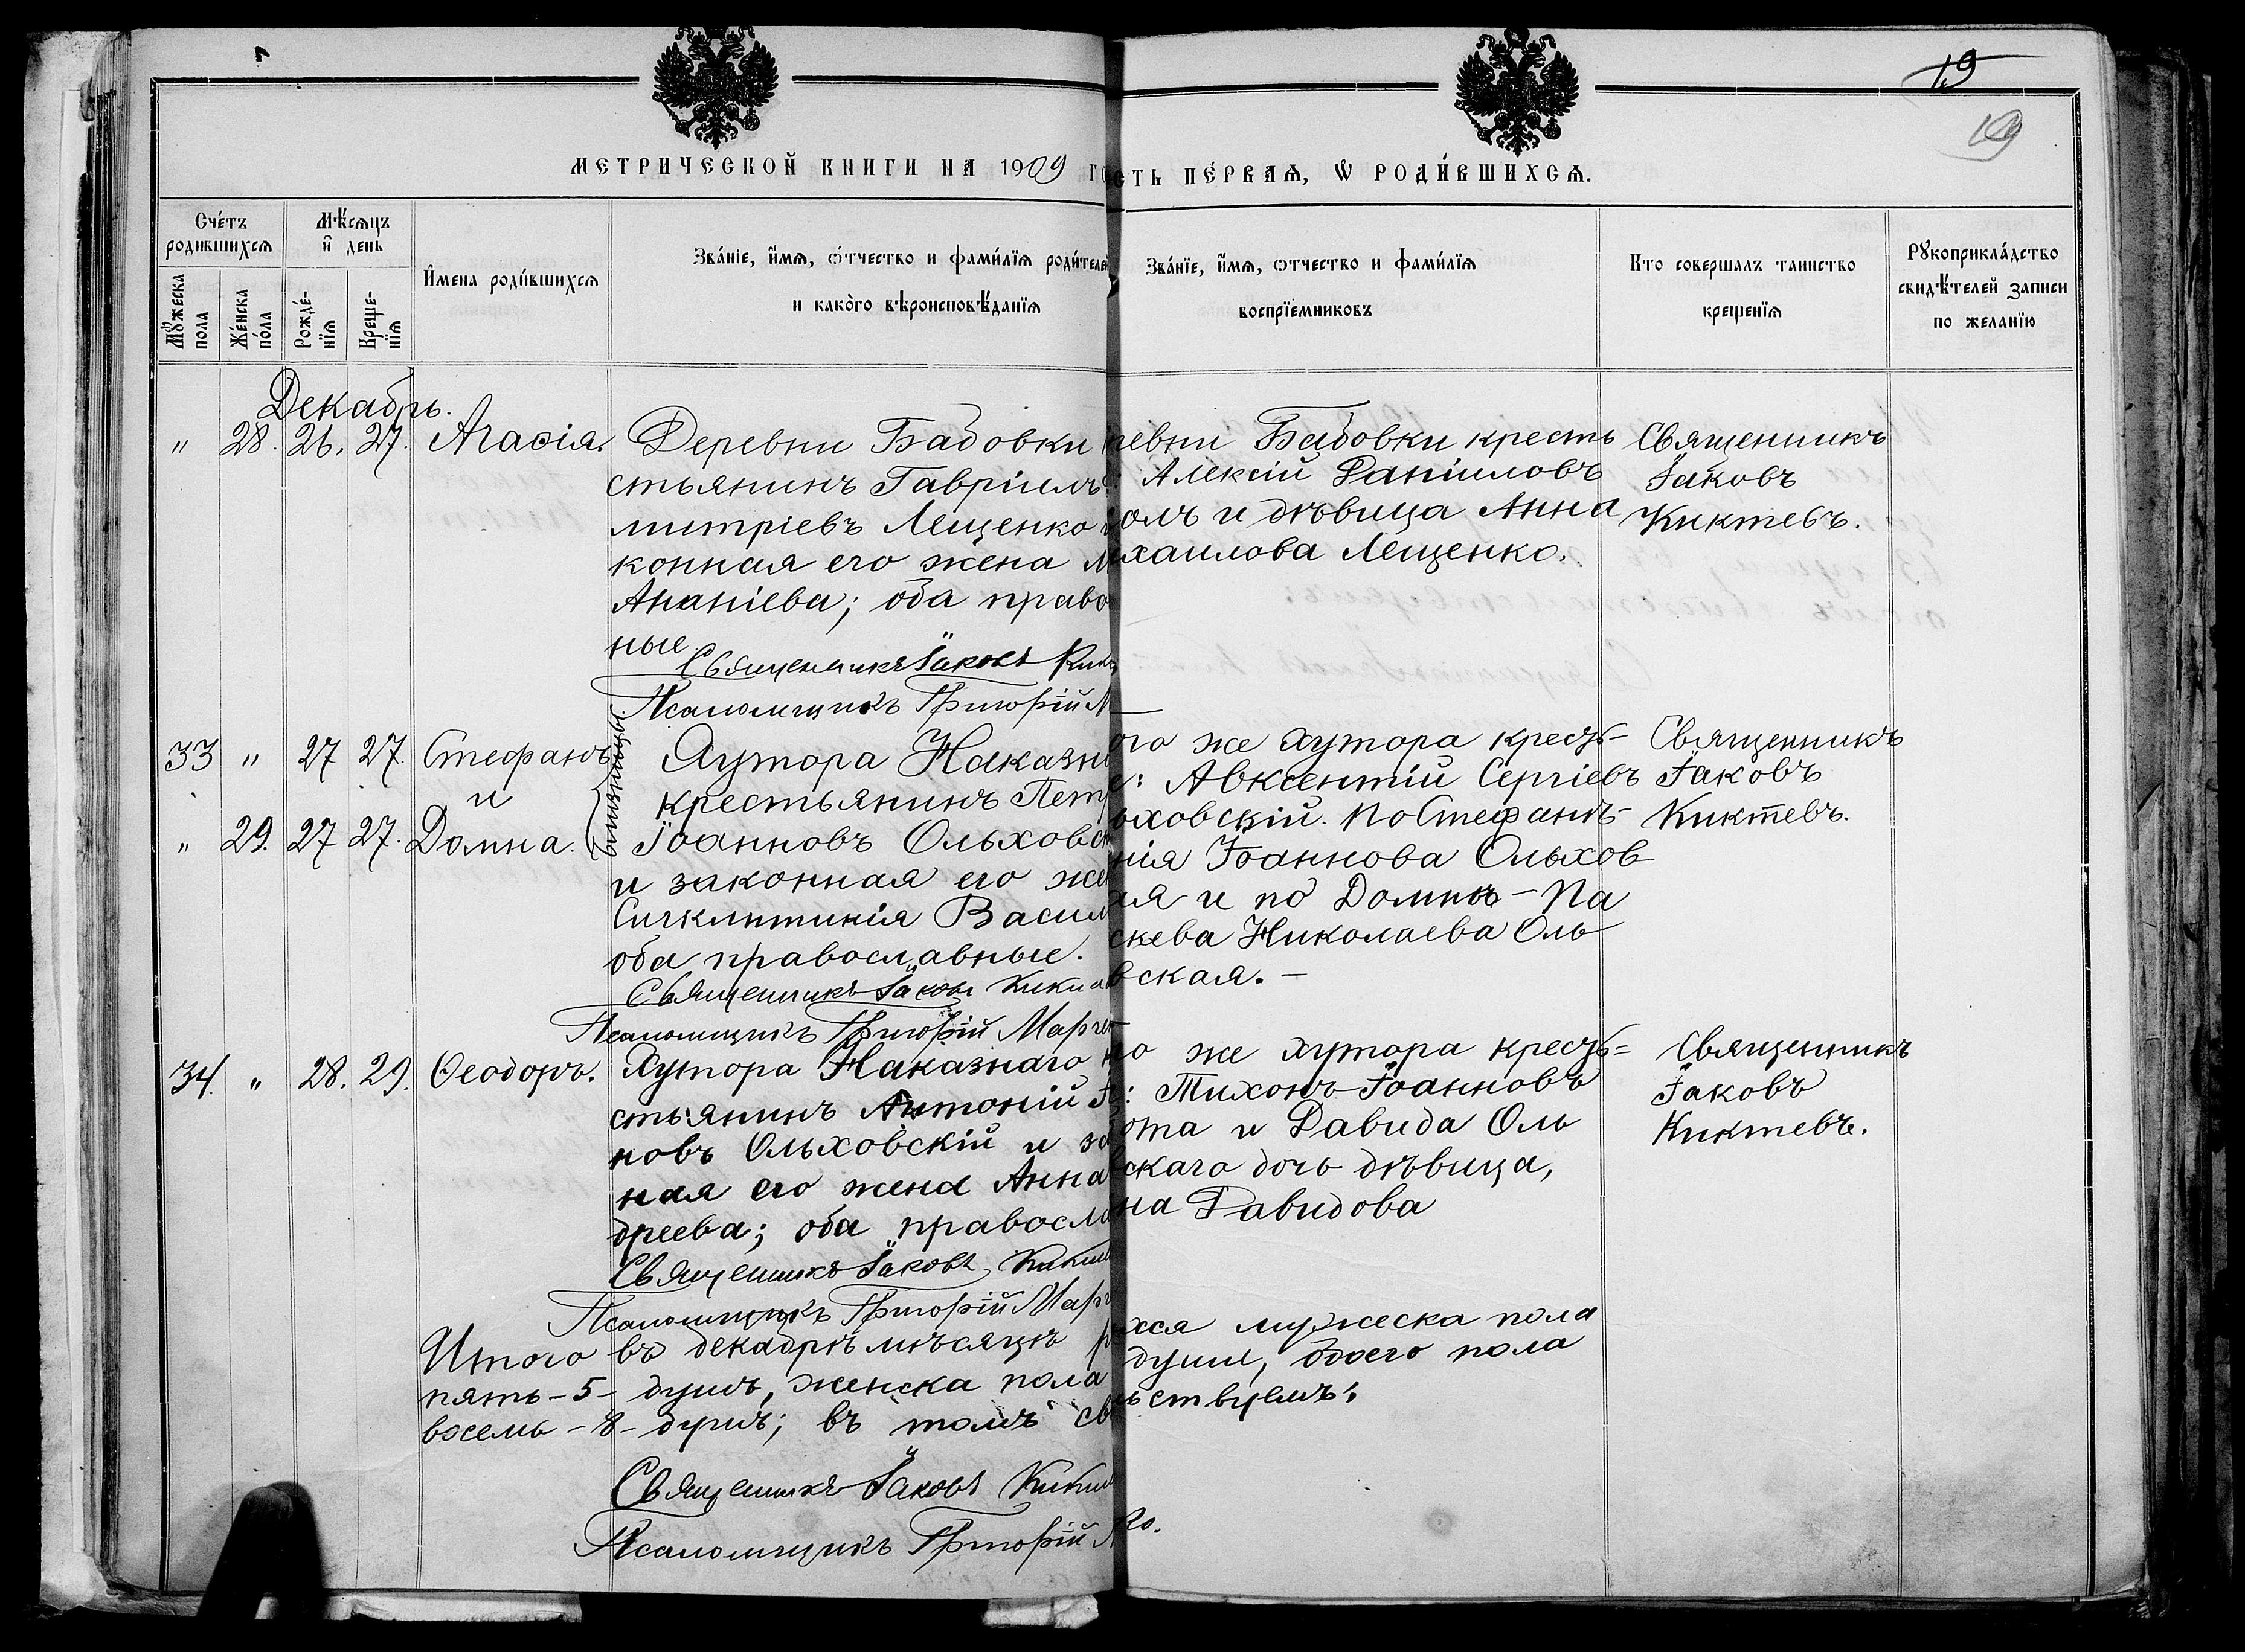 19
19
МЕТРИЧЕСКОЙ КНИГИ НА 1909
СТЬ ПЕ́РВАѦ, Ѡ РОДИ́ВШИХСѦ.
Сче́тъ родившихсѧ
Мѣ́сѧцъ и҆ день
Мꙋжеска пола
Же́нска по́ла
Рожде́-нїѧ
Креще-нїѧ
И҆мена роди́вшихсѧ
Зва́нїе, и҆́мѧ, ѻ҆́тчество и фами́лїѧ роди́теле
и како́го вѣроисповѣ́данїѧ
Зва́нїе, и҆́мѧ, ѻтчество и фами́лїѧ
воспрїе́мниковъ
Кто совершалъ таинство
крещенїѧ
Рꙋкоприкла́дство
свидѣ́телей записи
по желанїю
Декабрь.
" 28. 26. 27. Агаѳія.
Деревни Бабовки
стьянинъ Гавріилъ
митріевъ Лещенко
конная его жена
Ананіева; оба право
ные.
Священникъ Іаковъ
Псаломщикъ Григорій
ревни Бабовки кресть
Алексій Даніиловъ
и дѣвица Анна
хаилова Лещенко.
Священникъ
Іаковъ
Киктевъ.
33 " 27 27. Стефанъ
и
" 29. 27 27. Домна.
близнецы
Хутора Наказн
крестьянинъ Петр
Іоанновъ Ольховск
и законная его жен
Сигклитикія Васил
оба православные.
Священникъ Іаковъ
Псаломщикъ Григорій Марчен
ого же хутора кресть-
е: Авксентій Сергіевъ
ьховскій. По Стефанѣ-
нія Іоаннова Ольхов
ая и по Домнѣ - Па
скева Николаева Оль
вская. -
Священникъ
Іаковъ
Киктевъ.
34. " 28. 29. Ѳеодоръ.
Хутора Наказнаго
стьянинъ Антоній
новъ Ольховскій и за
ная его жена Анна
дреева; оба правосла
Священникъ Іаковъ
Псаломщикъ Григорій Марч
го же хутора кресть=
: Тихонъ Іоанновъ
ота и Давида Оль
вскаго дочь дѣвица,
на Давидова
Священникъ
Іаковъ
Киктевъ.
Итого въ декабрѣ мѣсяцѣ р
пять - 5 - душъ, женска пола
восемь - 8 - душъ; въ томъ св
хся мужеска пола
души, обоего пола
ьствуемъ:
Священникъ Іаковъ
Псаломщикъ Григорій
ко.